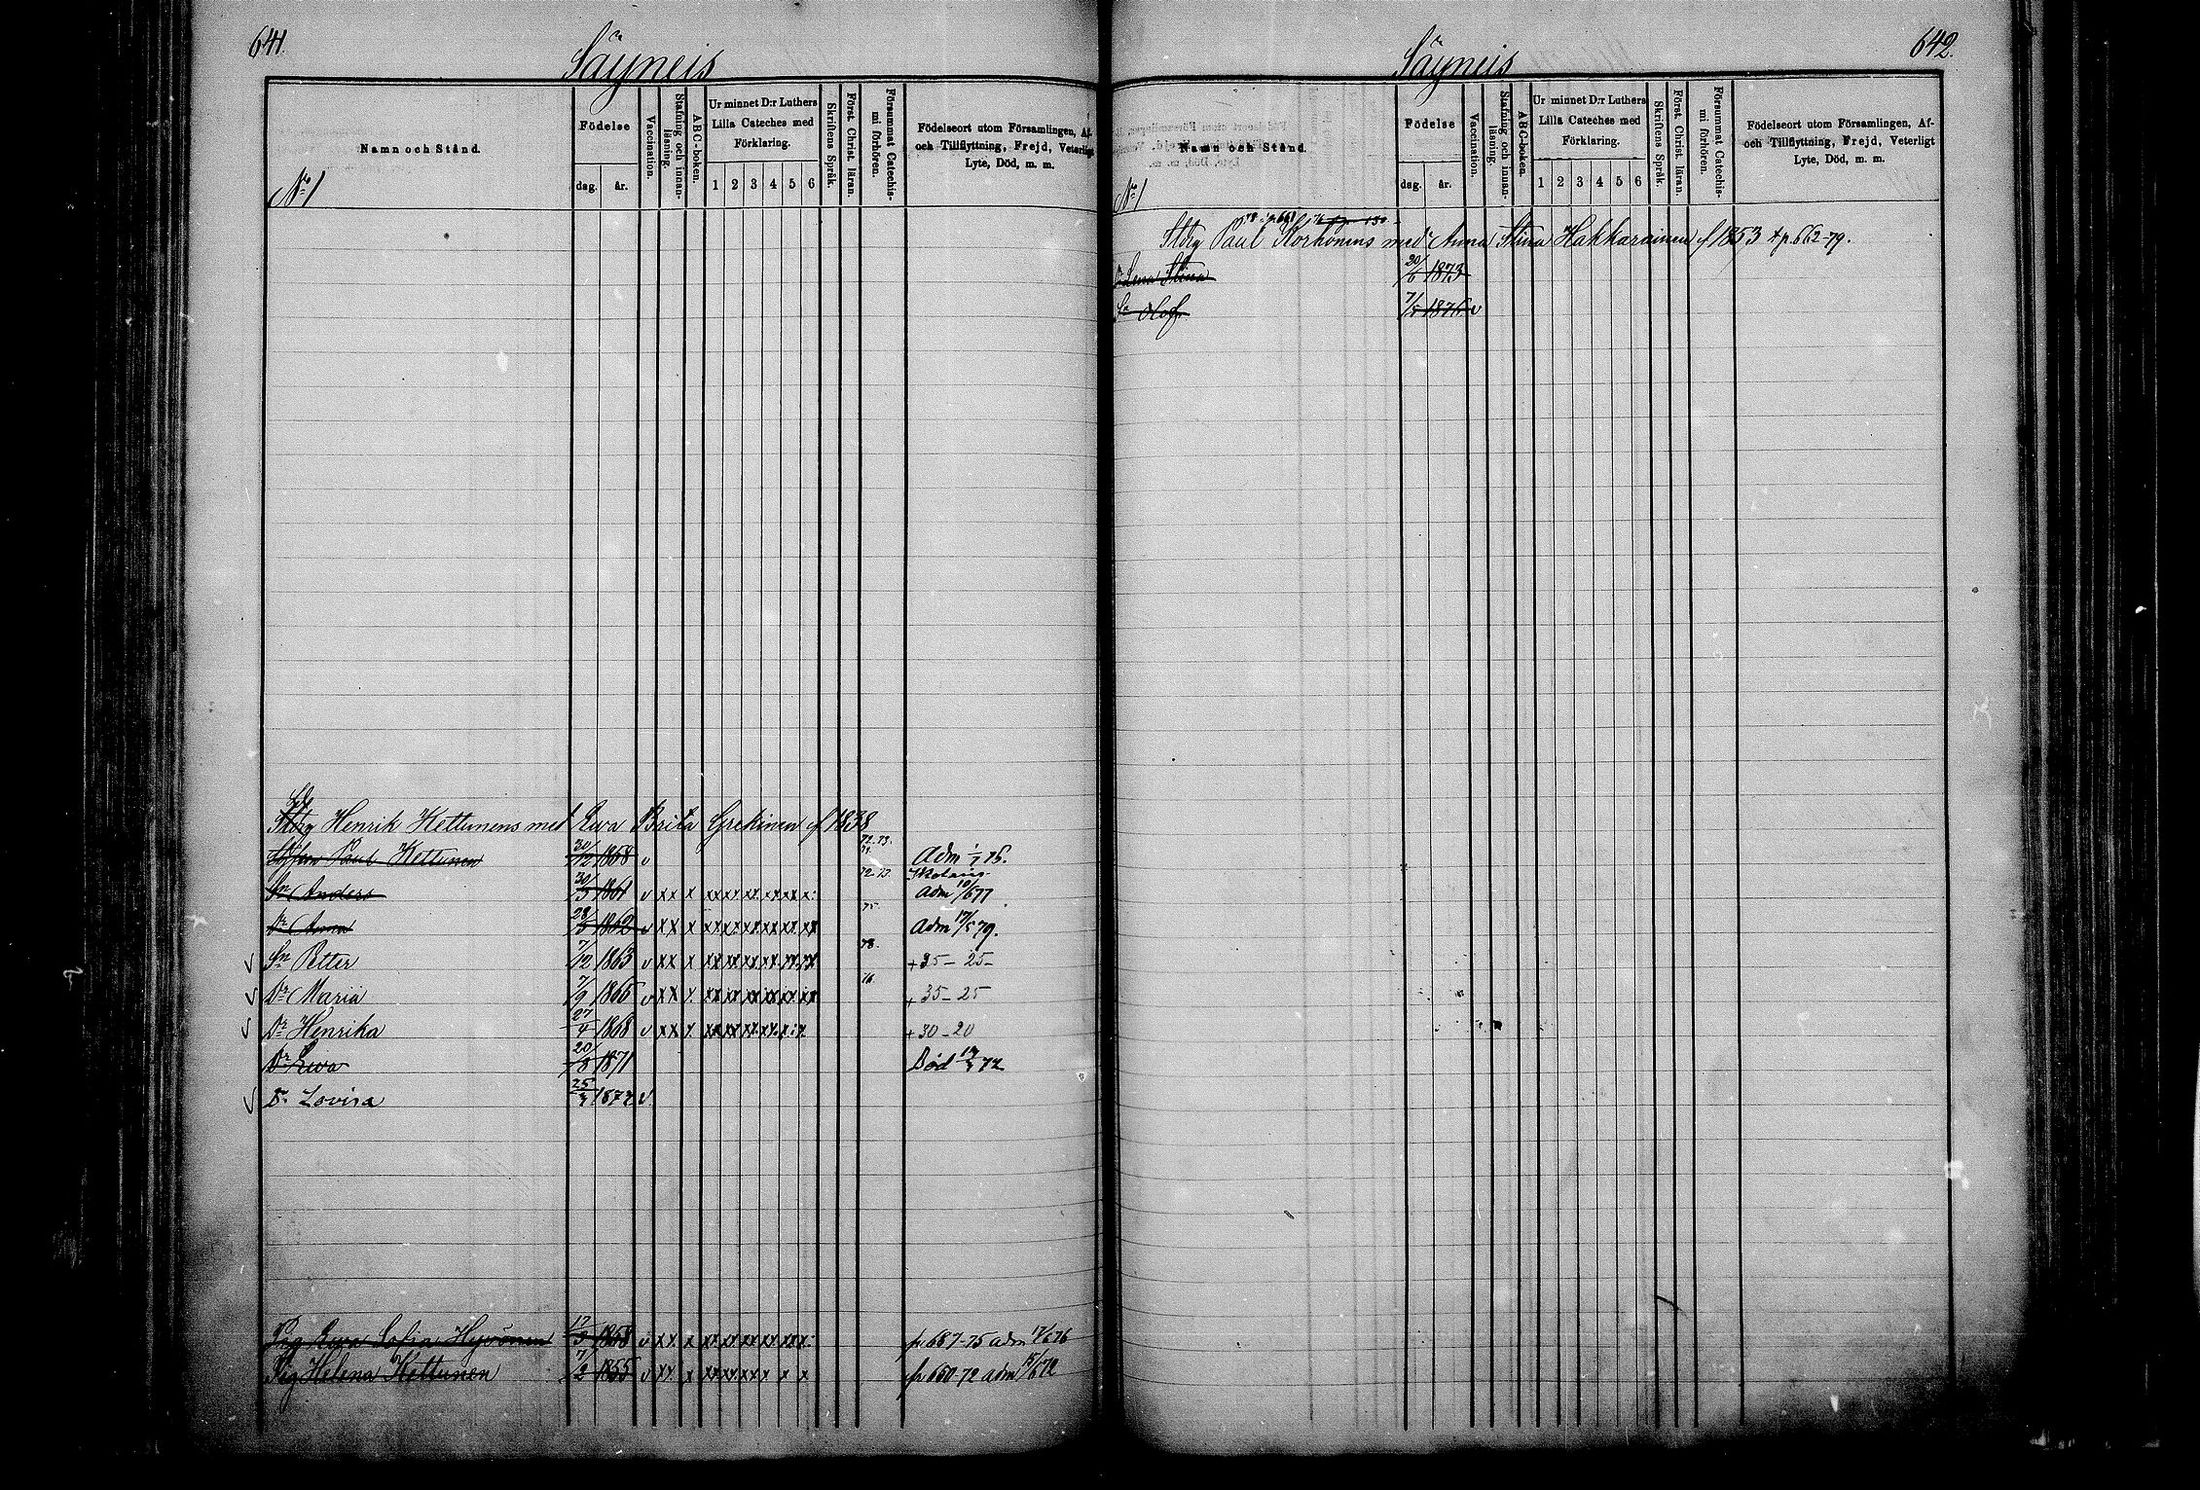 641.
Säyneis
Namn och Stånd.
Födelse
dag.
år.
Vaccination.
Stafning och innan-
läsning.
ABC-boken.
Ur minnet D:r Luthers
Lilla Cateches med
Förklaring.
1 2 3 4 5 6
Skriftens Språk.
Först. Christ. läran.
Försummat Catechis-
mi förhören.
Födelseort utom Församlingen, Af-
och Tillflyttning, Frejd, Veterligt
Lyte, Död, m. m.
No 1
Henrik Kettunens med Ewa Brita f 1838
72. 73.
Paul Kettunen 30/12 1858 v Adm 75.
Sn Anders 30/3 1861 v xx x Adm 10/6 77
75.
Dr Anna 28/5 1862 v xx x Adm 17/5 79.
78.
Sn Petter 7/12 1863 v xx x +35-25-
Dr Maria 7/9 1865 v xx x +35-25
Dr Henrika 27/4 1868 v xx x +30-20
Dr Ewa 20/8 1871 Död 72
Dr Lovisa v
Pig Ewa Sofia Hyvönen 17/5 1858 v xx x p 687-75 adm 17/6 76
Pig Helena Kettunen 7/2 1855 v xx x p 650-72 adm 15/6 72
642.
Säyneis
Namn och Stånd.
Födelse
dag.
år.
Vaccination.
Stafning och innan-
läsning.
ABC-boken.
Ur minnet D:r Luthers
Lilla Cateches med
Förklaring.
1 2 3 4 5 6
Skriftens Språk.
Först. Christ. läran.
Försummat Catechis-
mi förhören.
Födelseort utom Församlingen, Af-
och Tillflyttning, Frejd, Veterligt
Lyte, Död, m. m.
No 1
Paul Korhonens med Anna Stina Hakkarainen f 1853 p. 662-79.
Dr Lena Stina 1873
Sn Olof 1876 v